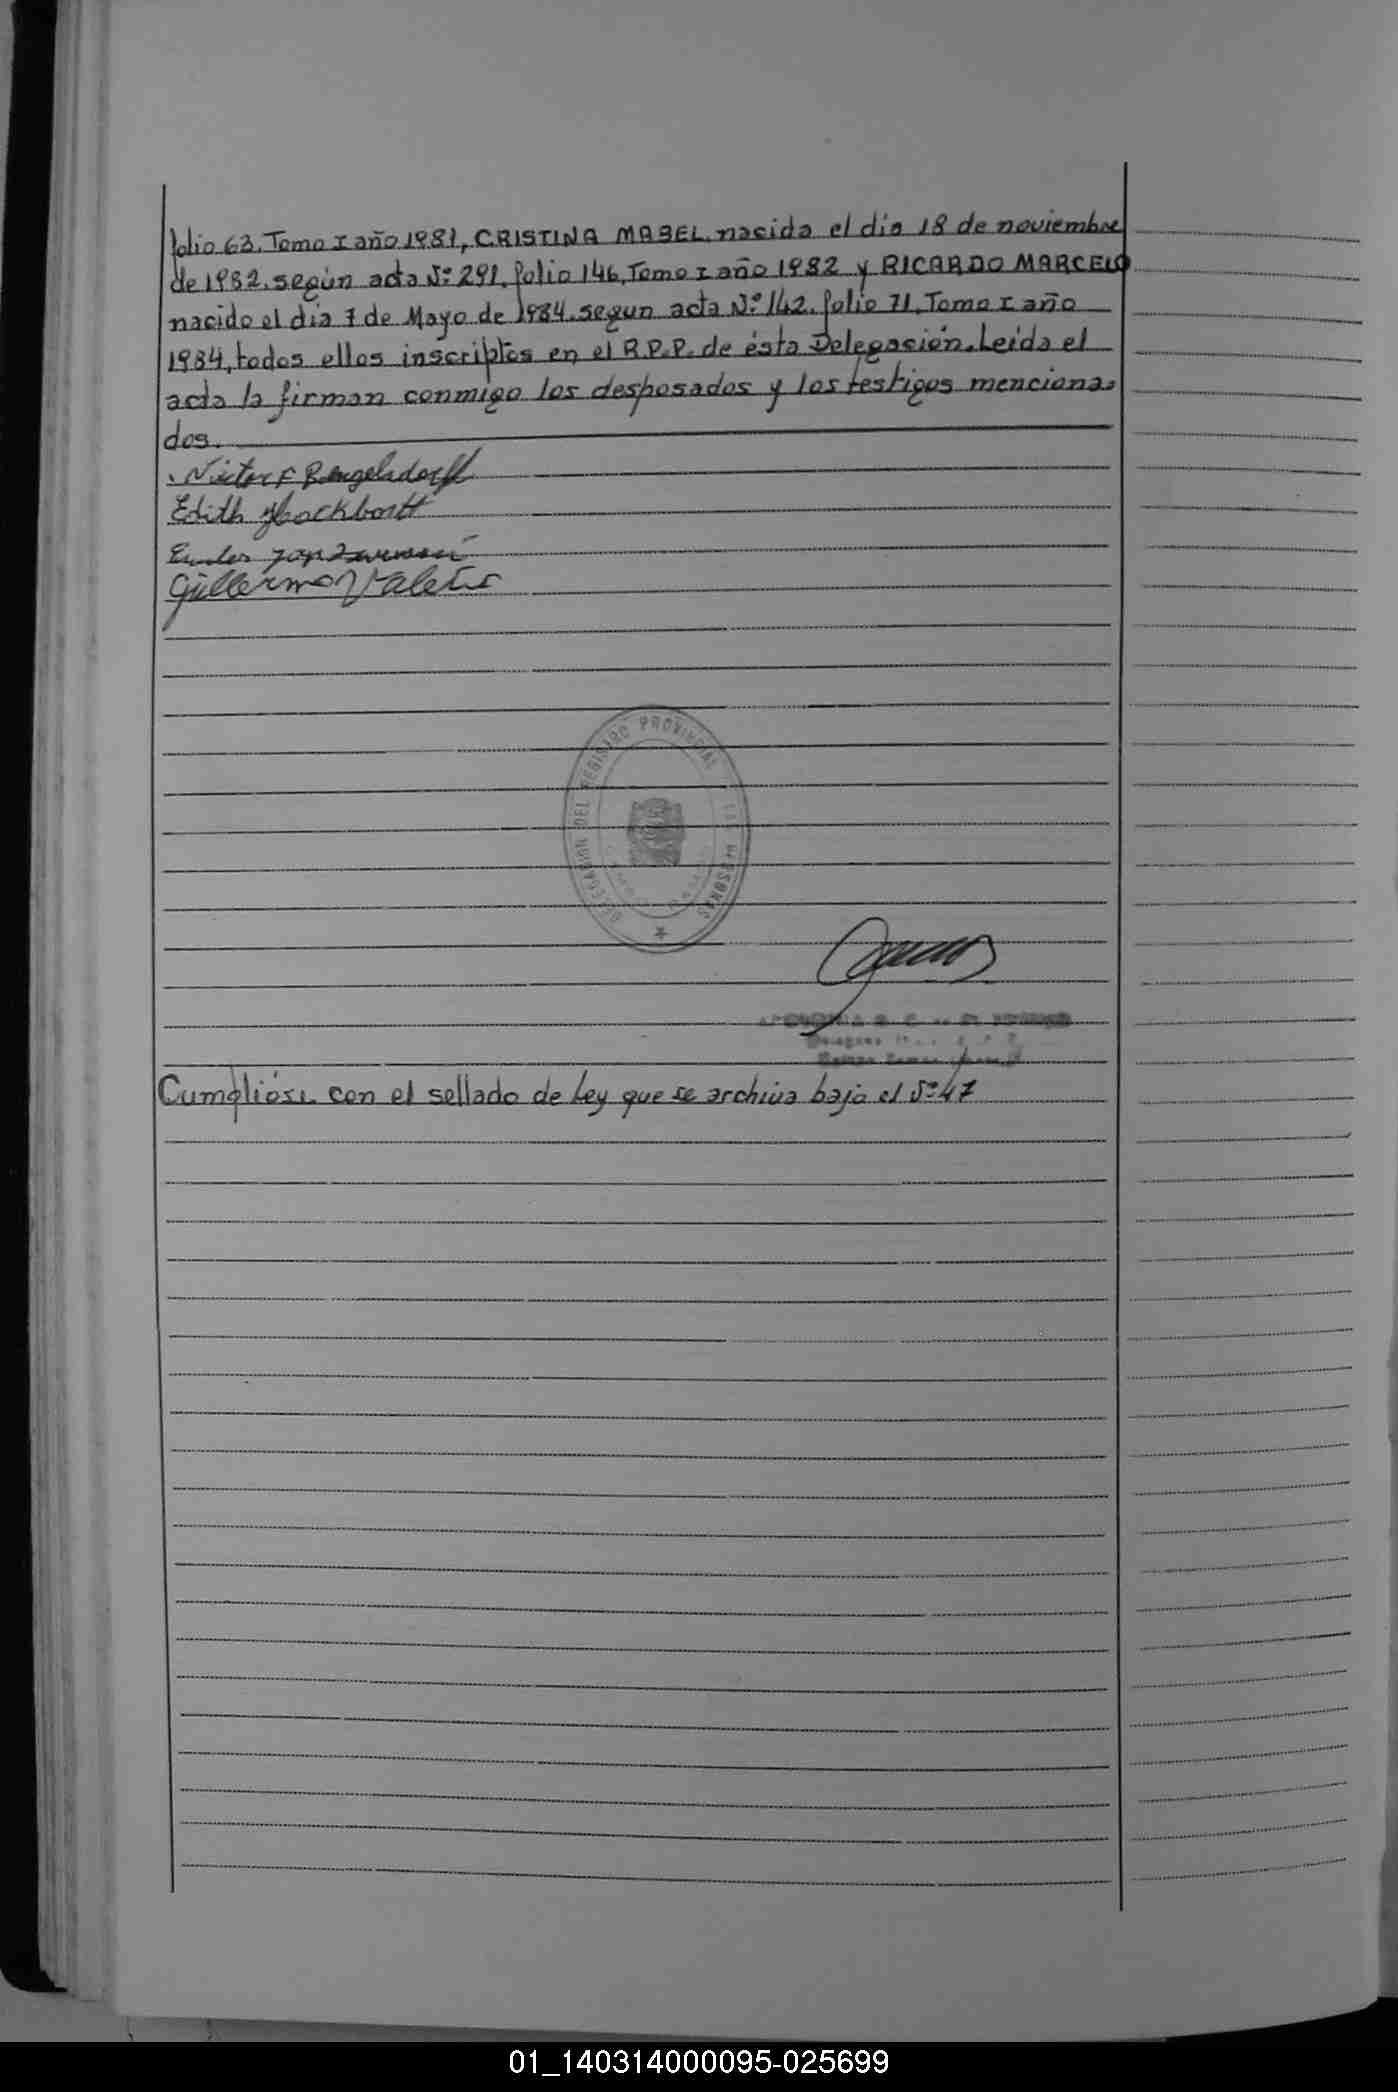 folio 63, Tomo I año 1981, CRISTINA MABEL, nacida el dia 18 de noviembre
de 1982, según acta Nº 291, folio 146, Tomo I año 1982 y RICARDO MARCELO
nacido el dia 7 de Mayo de 1984, segun acta Nº 142, folio 71, Tomo I año
1984, todos ellos inscriptos en el R.P.P. de ésta Delegación. Leida el
acta la firman conmigo los desposados y los testigos menciona-
dos.
Victor F Rengelsdorff
Edith
Guillermo Valetis
DELEGACION DEL REGISTRO PROVINCIAL LAS
Cumplióse con el sellado de Ley que se archiva bajo el Nº 47
01_140314000095-025699